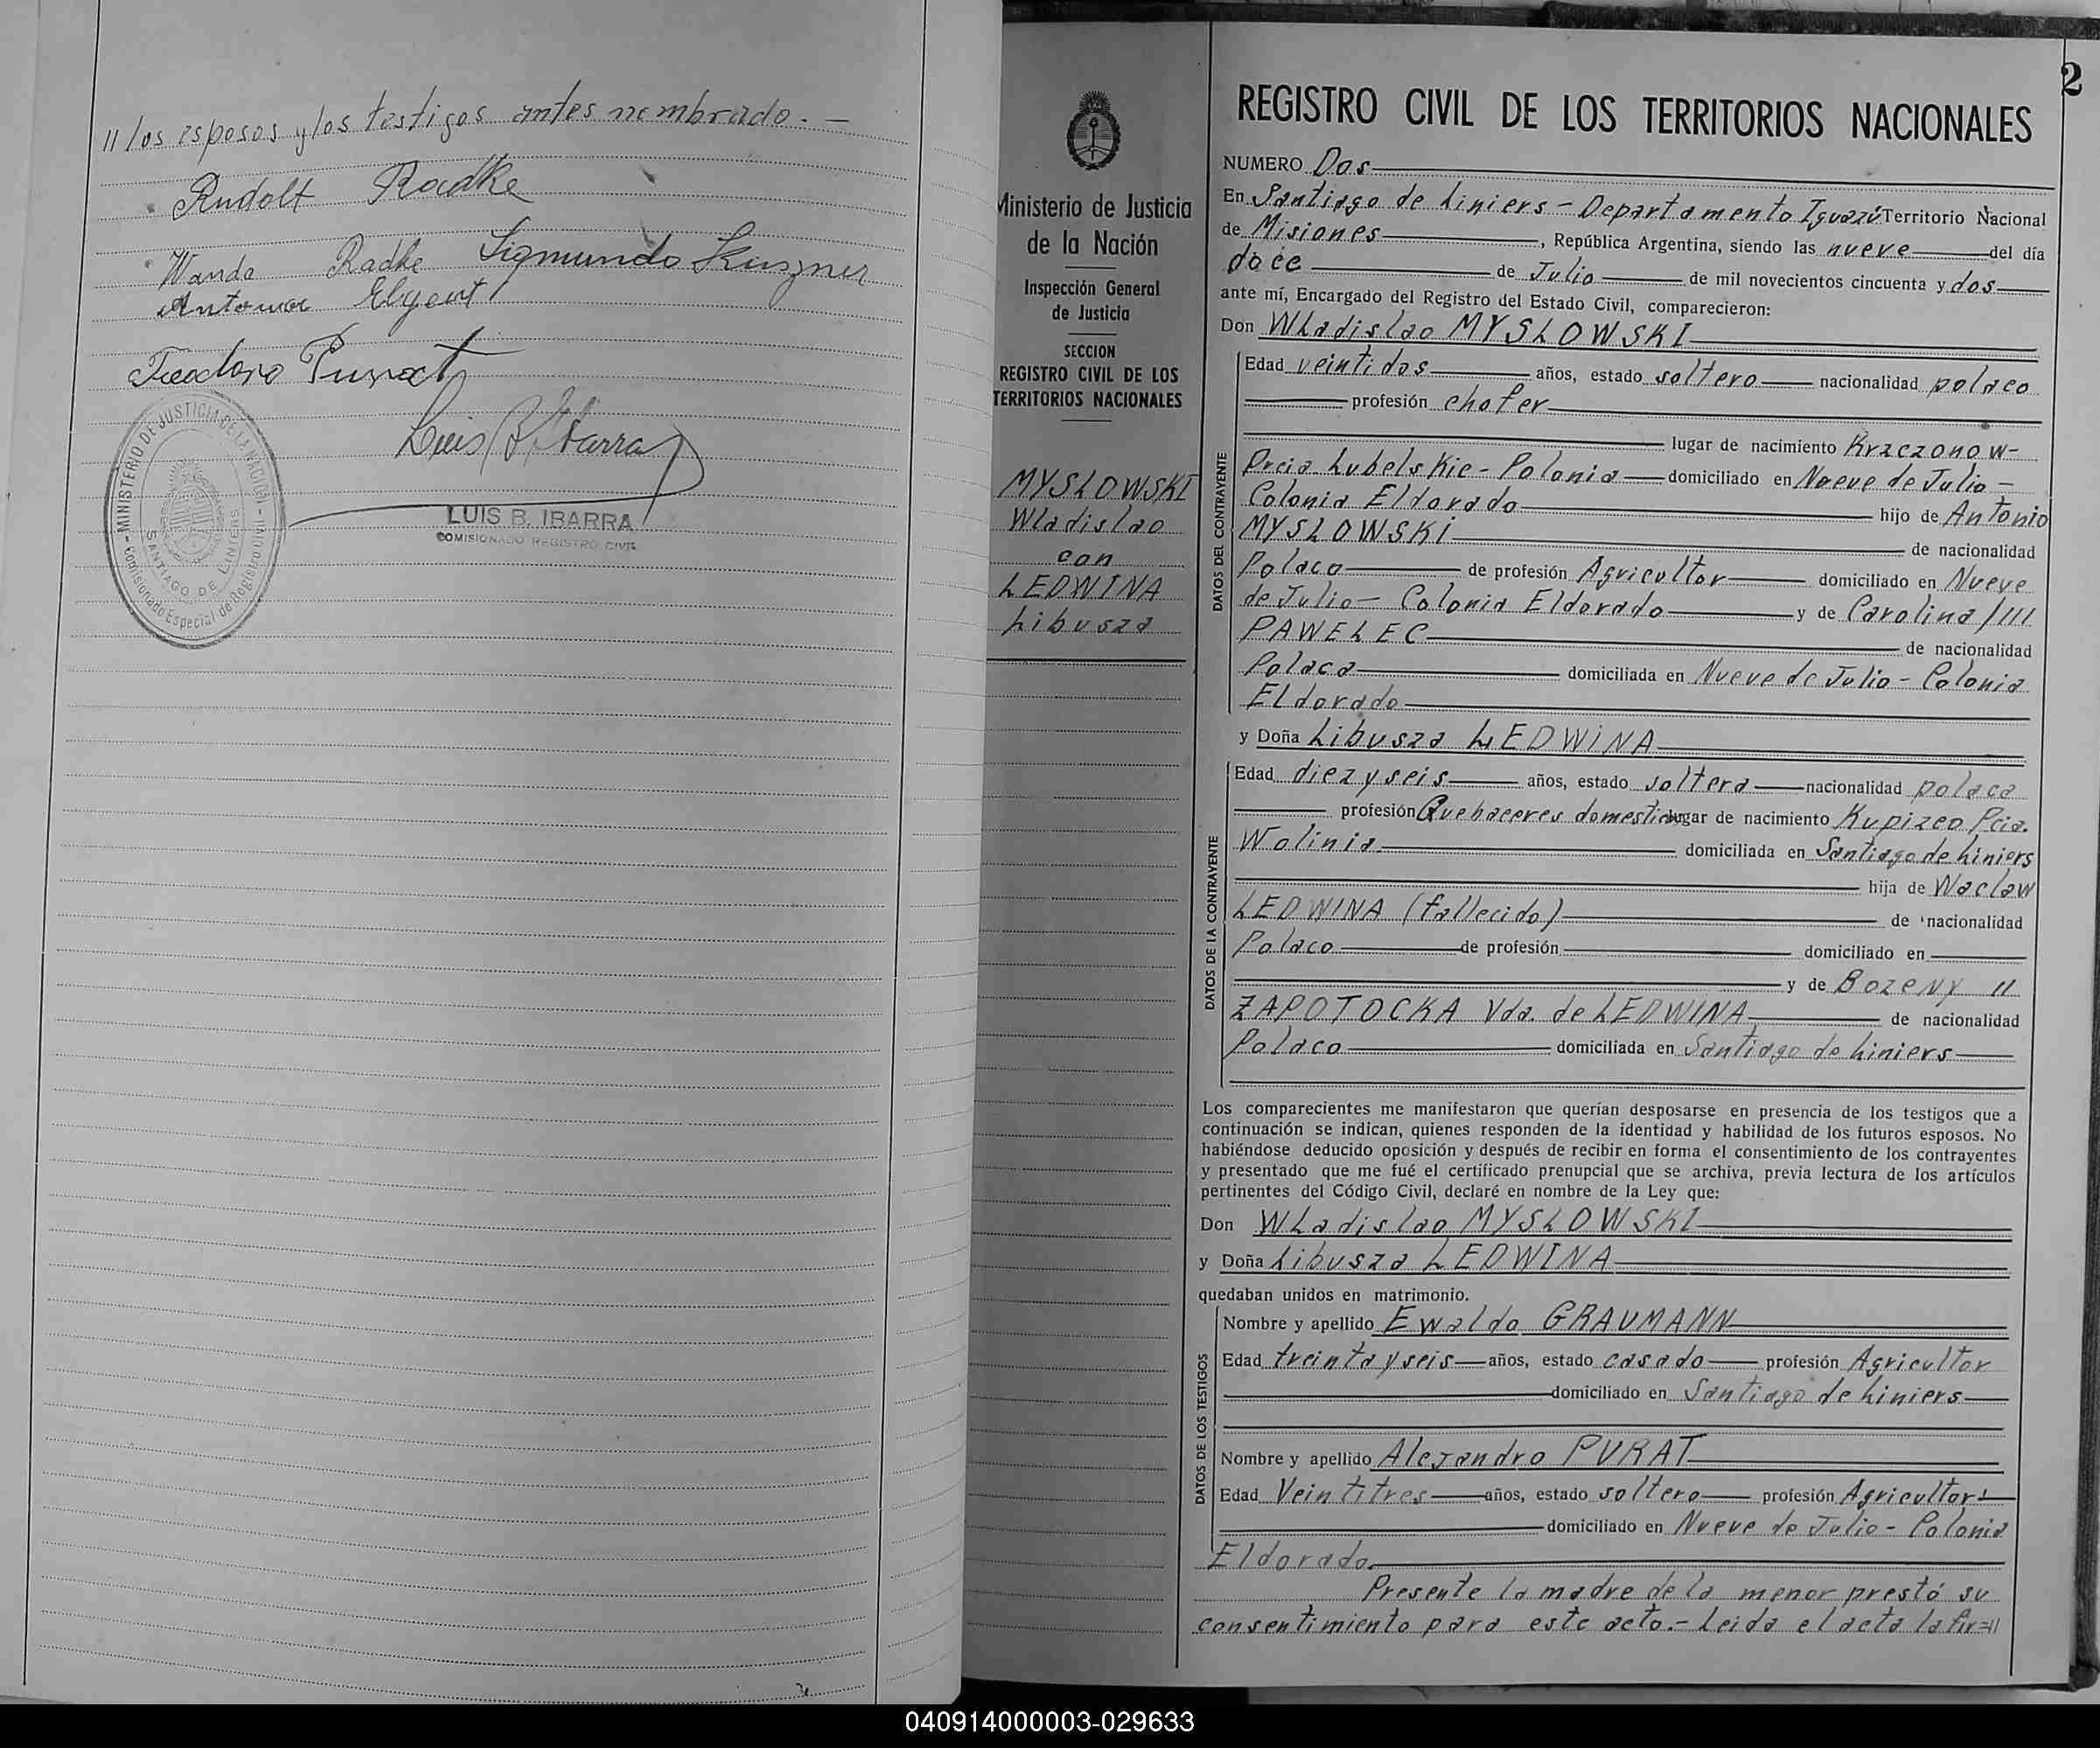 // los esposos y los testigos antes nombrado.-
Rudolf Radke
Wanda Radke Sigmundo
Antonor
Teodoro Purat
Luis B. Ibarra
LUIS B. IBARRA
COMISIONADO REGISTRO CIVIL
MINISTERIO DE JUSTICIA DE LA NACION - Comisionado Especial de Registro Civil -
SANTIAGO DE LINIERS
Ministerio de Justicia
de la Nación
Inspección General
de Justicia
SECCION
REGISTRO CIVIL DE LOS
TERRITORIOS NACIONALES
MYSLOWSKI
Wladislao
con
LEDWINA
Libusza
2
REGISTRO CIVIL DE LOS TERRITORIOS NACIONALES
NUMERO Dos
En Santiago de Liniers - Departamento Iguazú Territorio Nacional
de Misiones, República Argentina, siendo las nueve del día
doce de Julio de mil novecientos cincuenta y dos
ante mí, Encargado del Registro del Estado Civil, comparecieron:
Don Wladislao MYSLOWSKI
DATOS DEL CONTRAYENTE
Edad veintidos años, estado soltero nacionalidad polaco
profesión chofer
lugar de nacimiento Krzczonow-
Pcia Lubelskie - Polonia domiciliado en Nueve de Julio -
Colonia Eldorado hijo de Antonio
MYSLOWSKI de nacionalidad
Polaco de profesión Agricultor domiciliado en Nueve
de Julio - Colonia Eldorado y de Carolina ///
PAWELEC de nacionalidad
Polaca domiciliada en Nueve de Julio - Colonia
Eldorado
y Doña Libusza LEDWINA
DATOS DE LA CONTRAYENTE
Edad diez y seis años, estado soltera nacionalidad polaca
profesión Quehaceres domesticos lugar de nacimiento Kupizco Pcia.
Wolinia domiciliada en Santiago de Liniers
hija de Waclaw
LEDWINA (fallecido) de nacionalidad
Polaco de profesión domiciliado en
y de Bozeny //
ZAPOTOCKA Vda. de LEDWINA de nacionalidad
Polaco domiciliada en Santiago de Liniers
Los comparecientes me manifestaron que querían desposarse en presencia de los testigos que a
continuación se indican, quienes responden de la identidad y habilidad de los futuros esposos. No
habiéndose deducido oposición y después de recibir en forma el consentimiento de los contrayentes
y presentado que me fué el certificado prenupcial que se archiva, previa lectura de los artículos
pertinentes del Código Civil, declaré en nombre de la Ley que:
Don Wladislao MYSLOWSKI
y Doña Libusza LEDWINA
quedaban unidos en matrimonio.
DATOS DE LOS TESTIGOS
Nombre y apellido Ewaldo GRAUMANN
Edad treinta y seis años, estado casado profesión Agricultor
domiciliado en Santiago de Liniers
Nombre y apellido Alejandro PURAT
Edad Veintitres años, estado soltero profesión Agricultor
domiciliado en Nueve de Julio - Colonia
Eldorado.
Presente la madre de la menor prestó su
consentimiento para este acto.- Leida el acta la fir=//
040914000003-029633